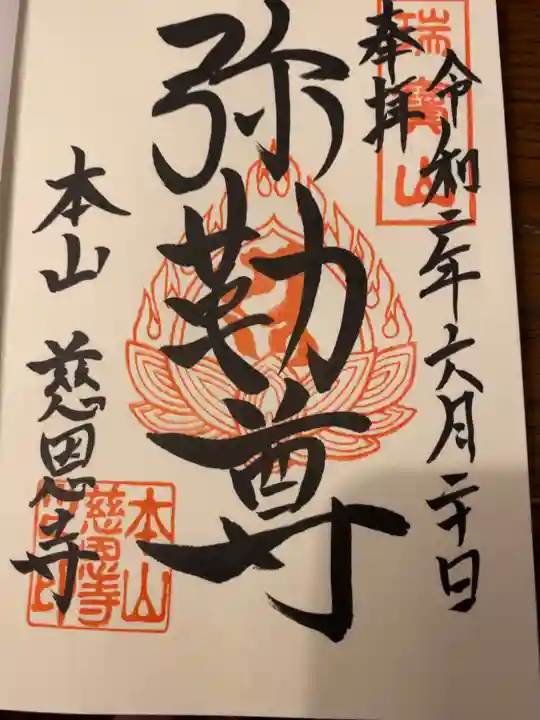 奉拝
令和二年六月二十日
瑞寳山
弥勒尊
本山 慈恩寺
本山
慈恩寺